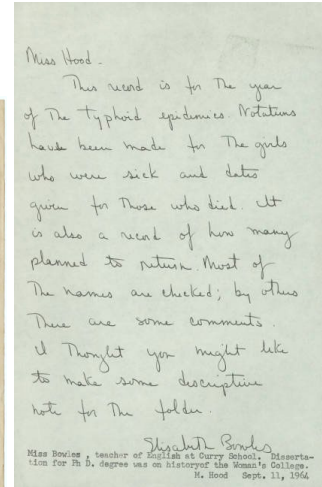 Miss Hood -
This record is for the year
of the Typhoid epidemics. Notations
have been made for the girls
who were sick and dates
given for those who died. It
is also a record of how many
planned to return. Most of
the names are checked; by others
there are some comments.
I thought you might like
to make some descriptive
note for the folder.
Elisabeth Bowles
Miss Bowles , teacher of English at Curry School. Disserta-
tion for Ph D. degree was on historyof the Woman's College.
M. Hood Sept. 11, 1964